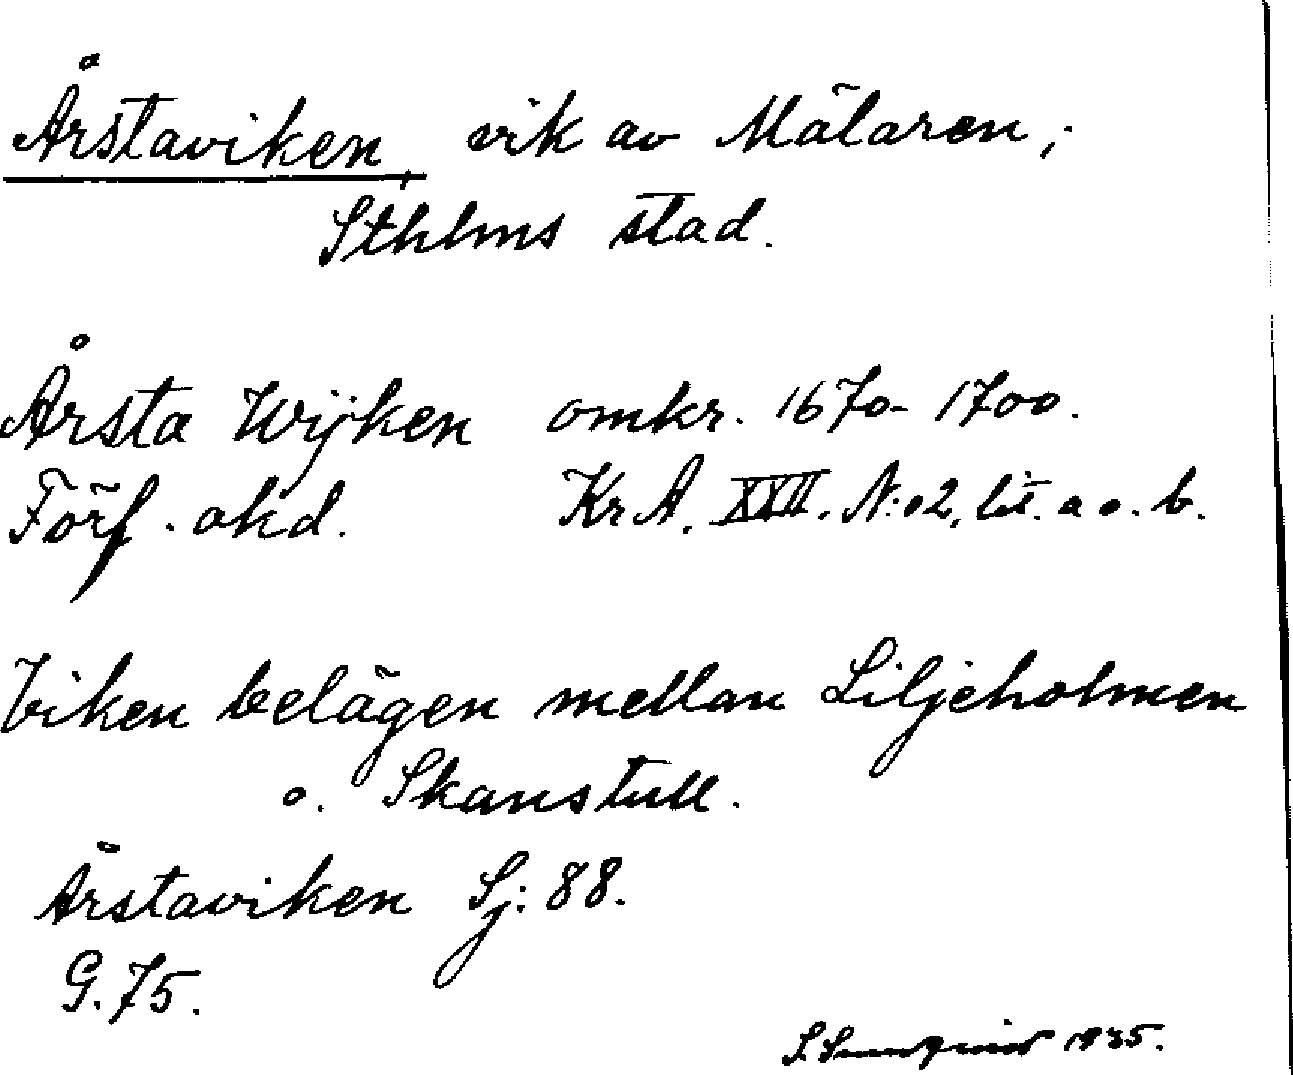 Årstaviken, vik av Mälaren;
Sthlms stad.
Årsta Wijken omkr. 1670-1700.
Förf. okd. KrA. XXII. N:o 2, lit. a o. b.
Viken belägen mellan Liljeholmen
o. Skanstull.
Årstaviken Sj: 88.
G. 75.
1935.